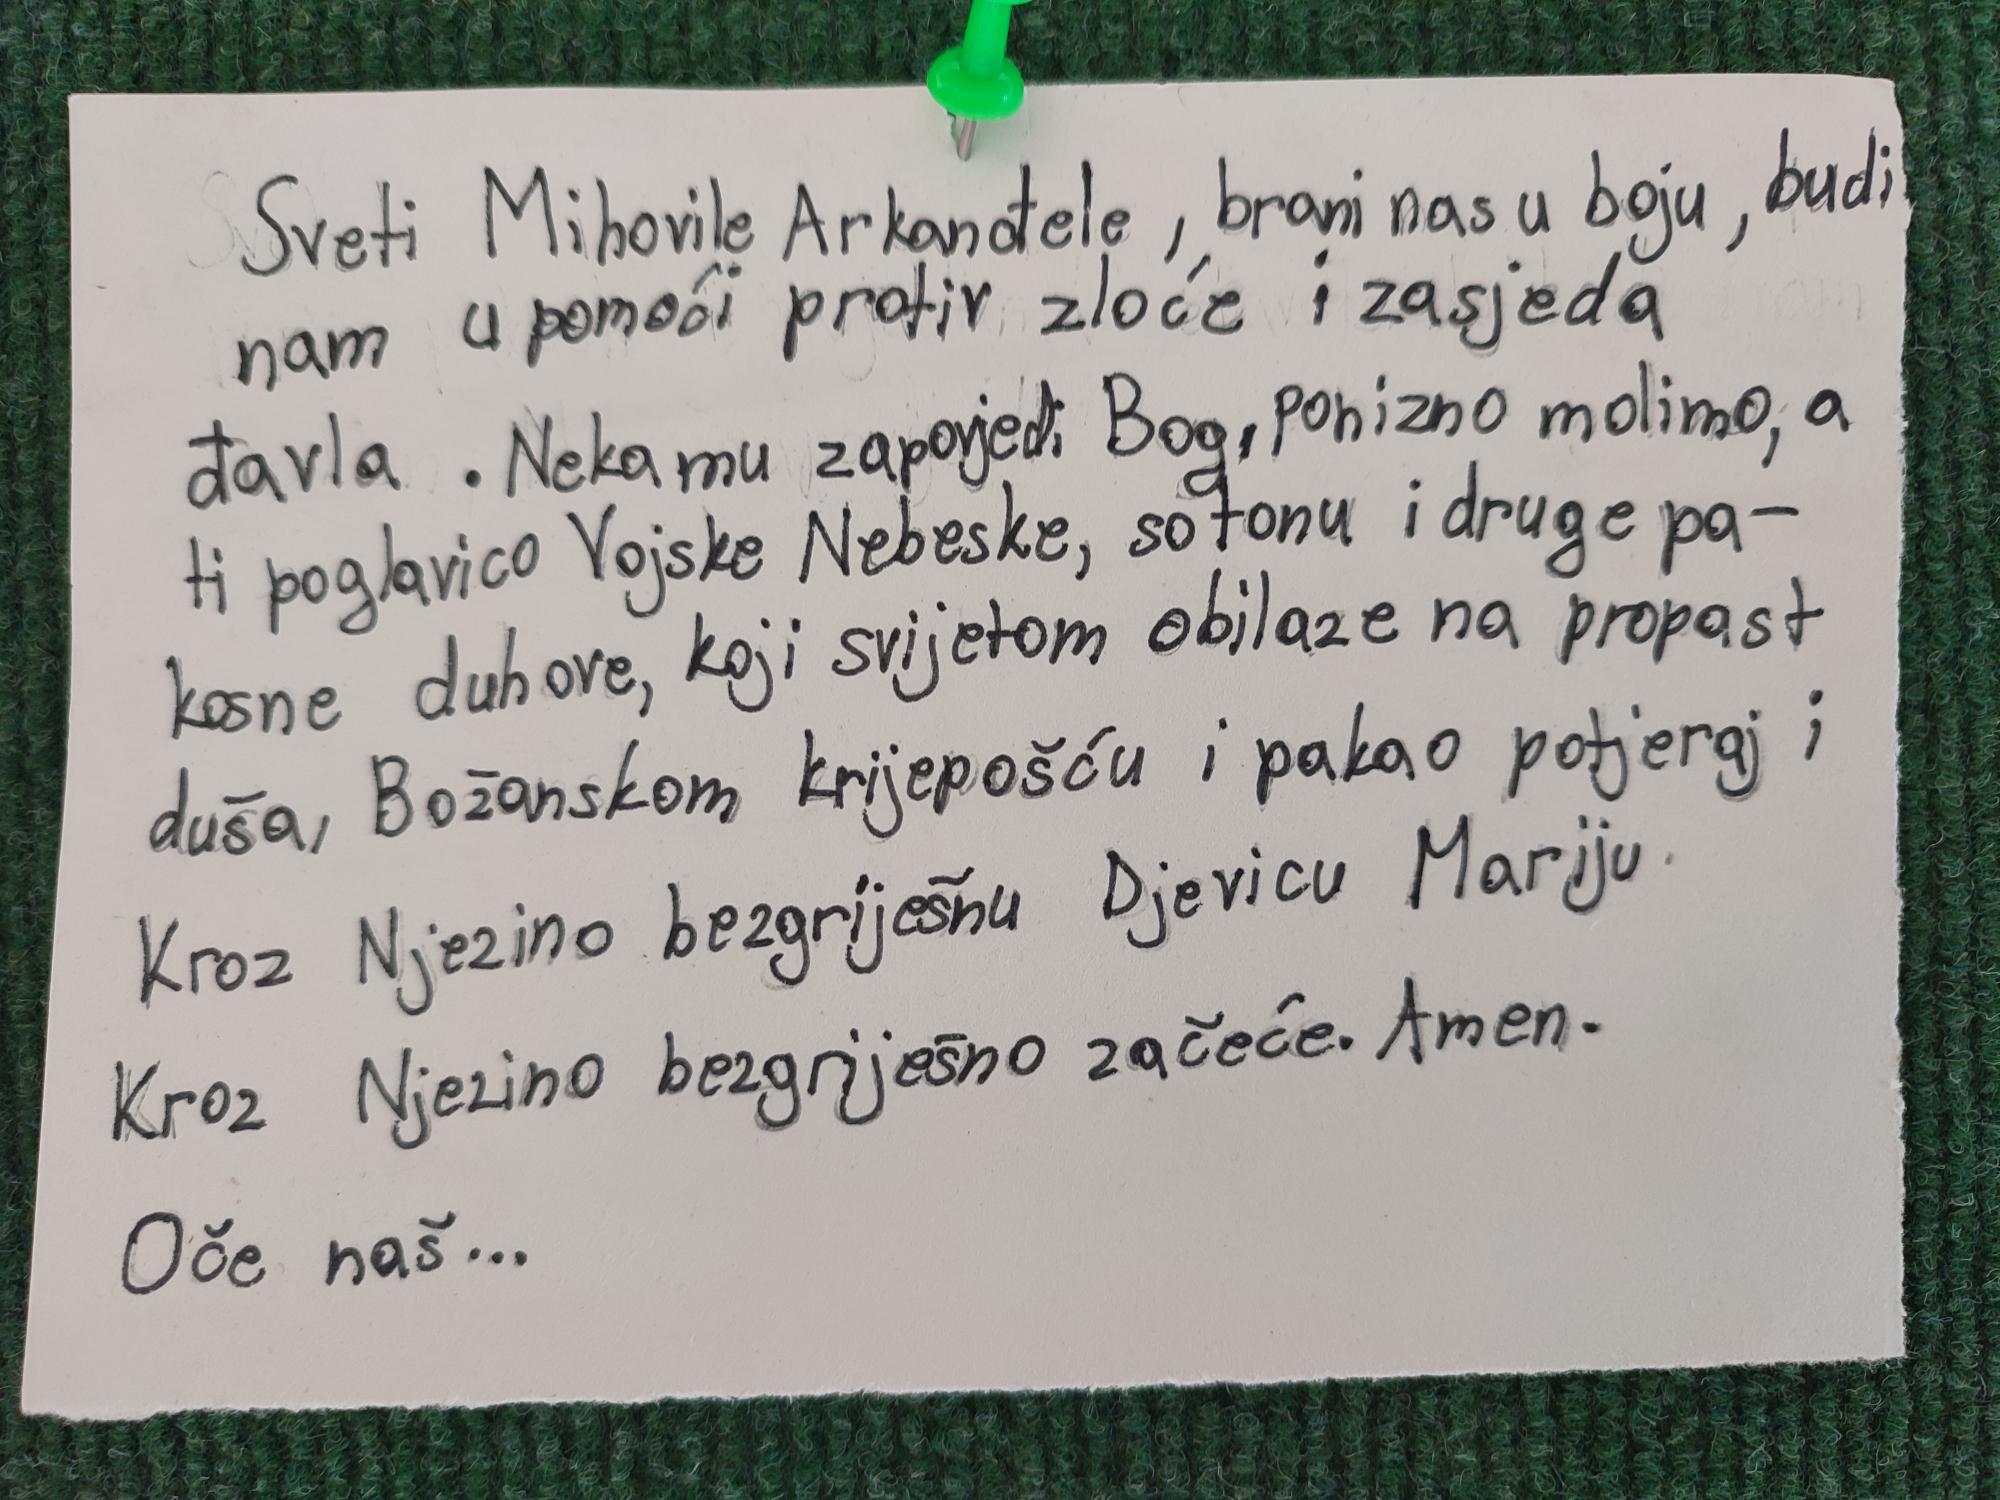 Sveti Mihovile Arkanđele, brani nas u boju, budi
nam u pomoći protiv zloće i zasjeda
đavla. Neka mu zapovjedi Bog, ponizno molimo, a
ti poglavico Vojske Nebeske, sotonu i druge pa-
kosne duhove, koji svijetom obilaze na propast
duša, Božanskom krijepošću i pakao potjeraj i
Kroz Njezino bezgriješnu Djevicu Mariju.
Kroz Njezino bezgriješno začeće. Amen.
Oče naš...